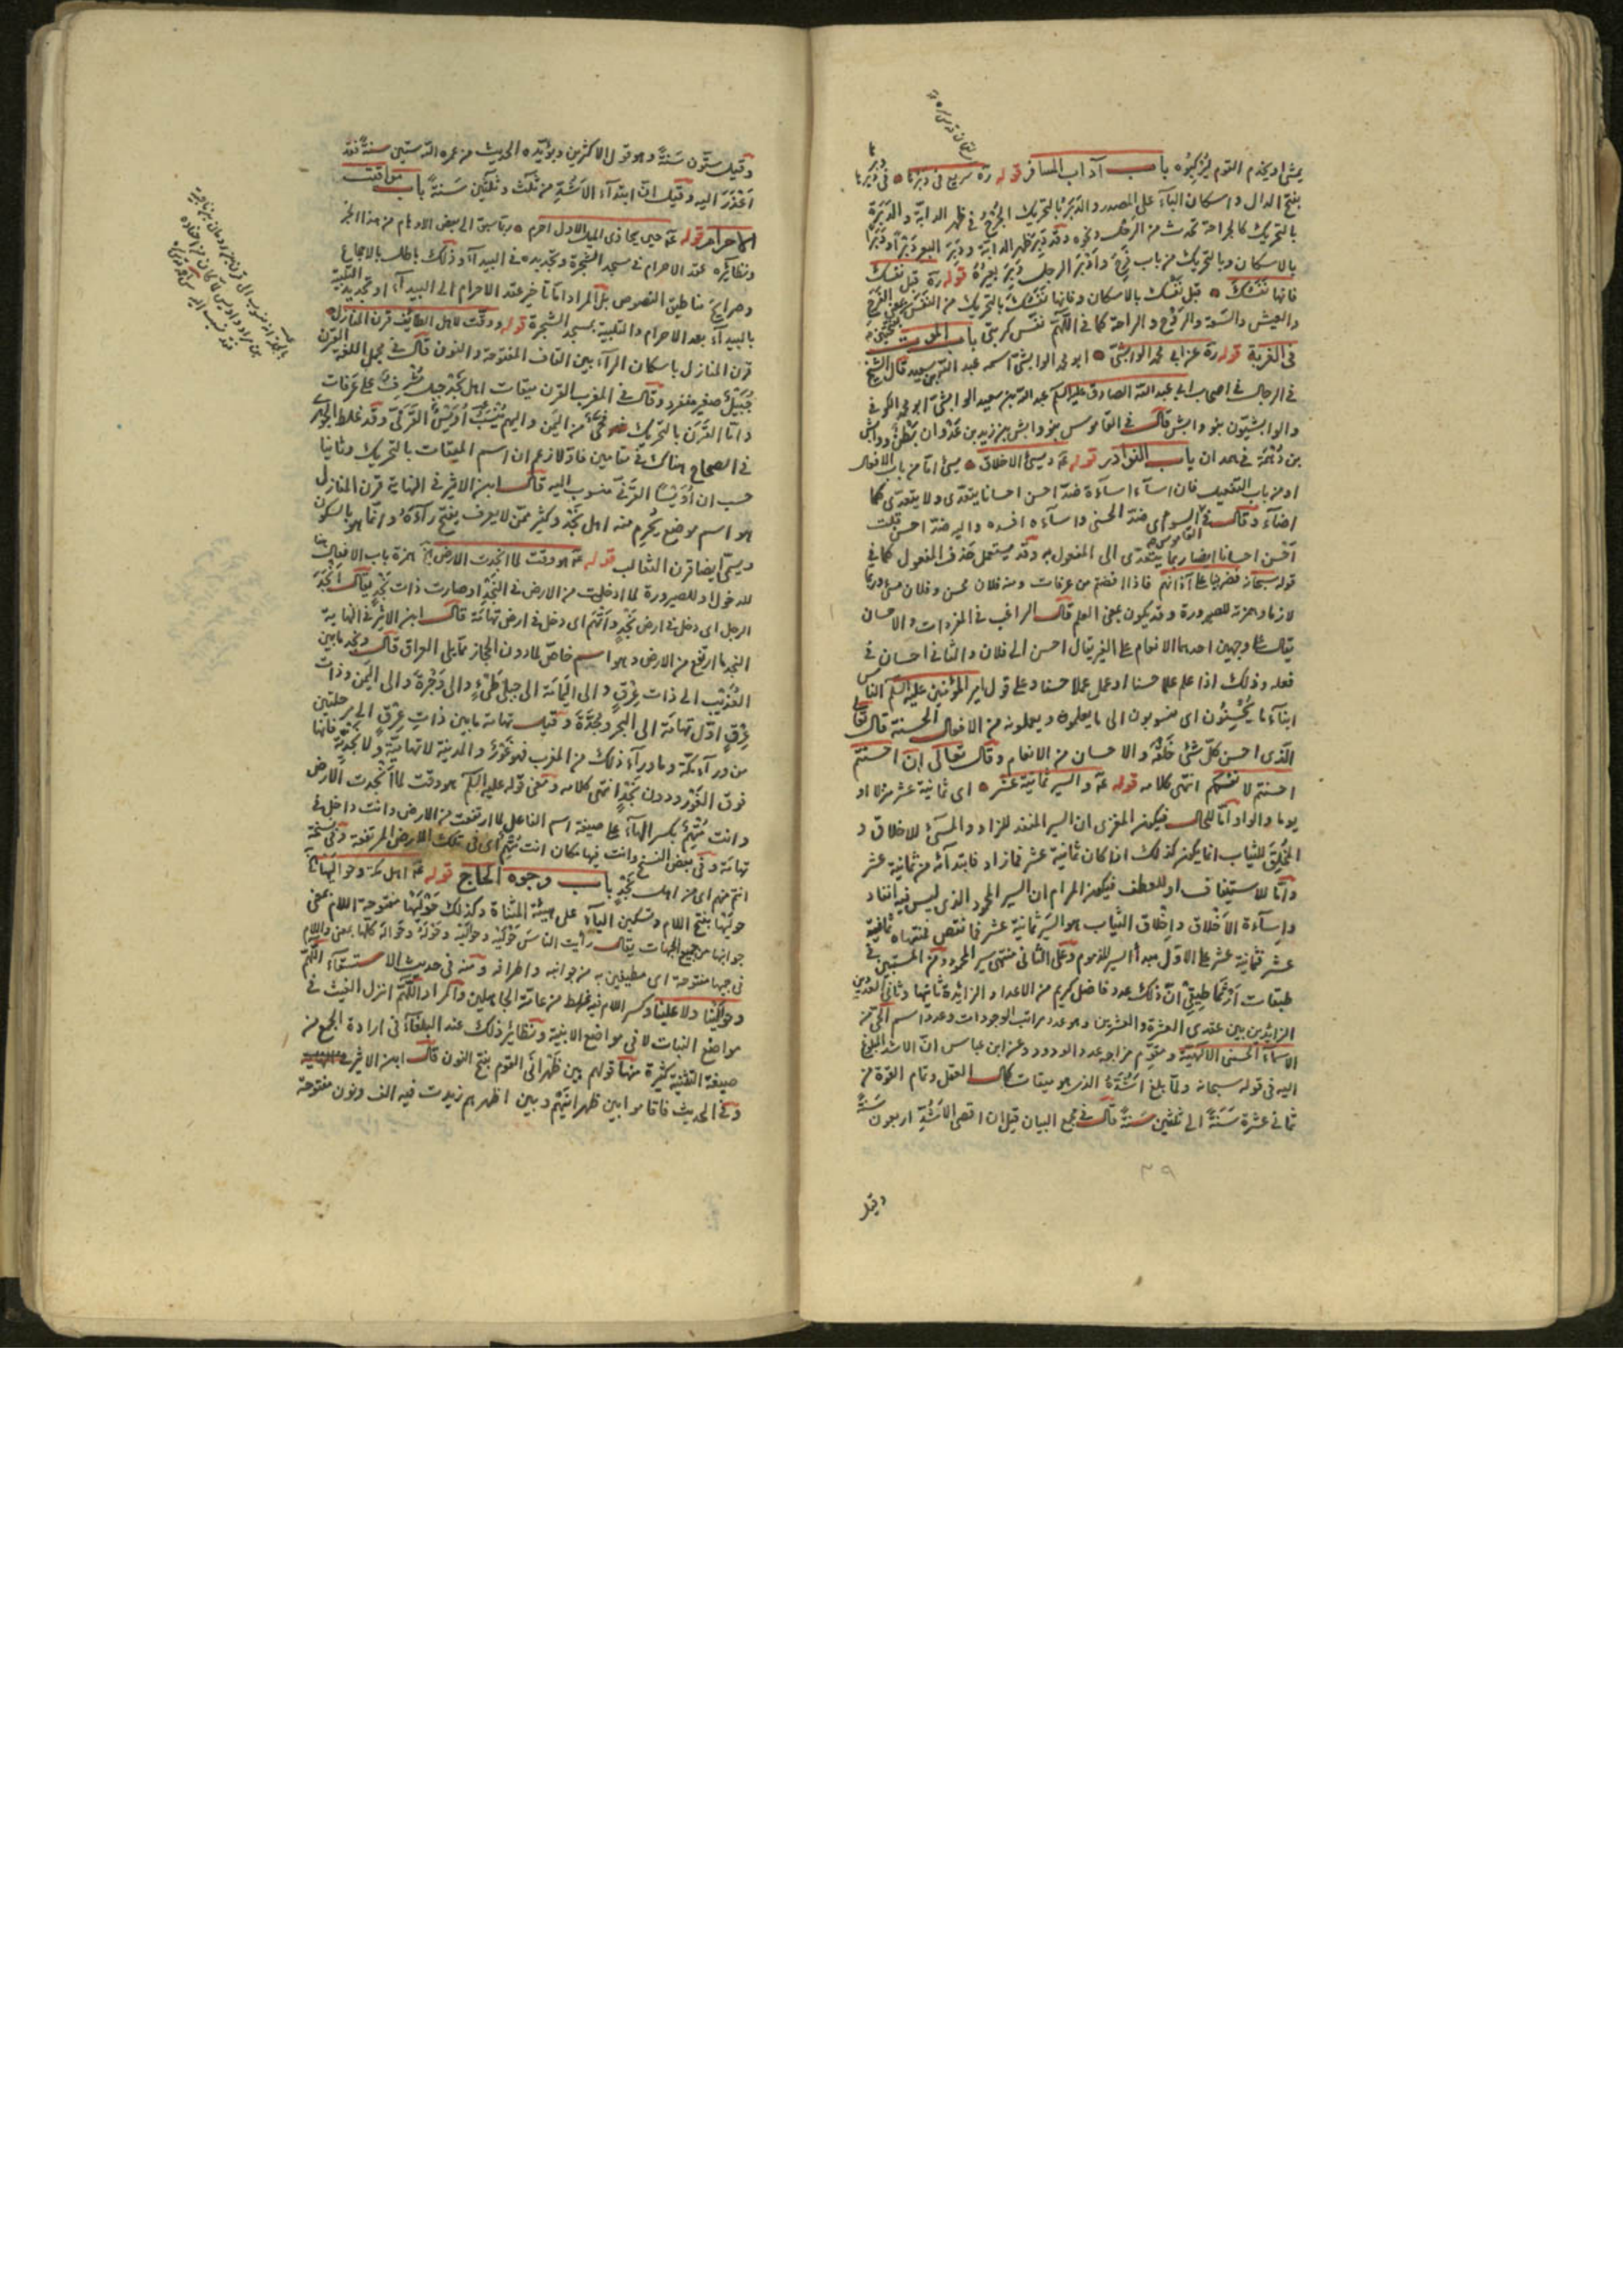 يمشى او يخدم القوم ليُزكبُوه باب آداب المسافر قوله ره سريع فى دبرنا فى دبرها
بفتح الدال واسكان الباء على المصدر والدَبَرُ بالتحريك الجُرْح فى ظهر الدابّة والدَبَرة
بالتحريك كالجراحة تحدث من الرحل ونحوه وقد دَبِرَ ظهر الدابّة ودَبِرَ البعير دَبَراً ودَبْراً
بالاسكان وبالتحريك من باب فَرِحَ واَدْبَر الرجل دَبِرَ بعيرُهُ قوله ره قبل نفسك
فانها نَفَسُكَ قبل نفسك بالاسكان وفانها نَفَسُكَ بالتحريك من النَفَس بمعنى الفَرَج
والعيش والسّعة والرَّوْح والراحة كما فى اللّهُمّ نفّس كربتى باب الموت
فى الغربة قوله ره عن ابى محمد الوابشىّ ابو محمد الوابشىّ اسمه عبد الله بن سعيد قال الشيخ
فى الرجال فى اصحاب ابى عبد الله الصادق عليه السلم عبد الله بن سعيد الوابشىّ ابو محمد الكوفى
والوابشيّون بنو وابش قال فى القاموس بنو وابش بن زيد بن عَدْوان بَطْنٌ ووابش
بن دُهْمَة فى همدان باب النوادر قوله عه وسيئ الاخلاق سيئ امّا من باب الافعال
او من باب التفعيل فان اساء اساءة ضدّ احسن احسانا يتعدّى ولا يتعدّى كما
اضاء وقال فى القاموس السوءى ضدّ الحسنى واساءه افسده واليه ضدّ احسن قلت
اَحْسَن احسانا ايضا ربما يتعدّى الى المفعول به وقد يستعمل بحذف المفعول كما فى
قوله سبحانه فضربنا على آذانهم فاذا افضتم من عرفات ومنه فلان محسن وفلان مسئ وربما
لازما وهمزته للصيرورة وقد يكون بمعنى العلم قال الراغب فى المفردات والاحسان
يقال على وجهين احدهما الانعام على الغير يقال احسن الى فلان والثانى احسان فى
فعله وذلك اذا علم علما حسنا او عمل عملا حسنا وعلى قول امير المؤمنين عليه السلم الناس
ابناء ما يُحْسِنُون اى منسوبون الى ما يعلمون ويعملونه من الافعال الحسنة قال تعالى
الّذى احسن كلّ شئ خَلْقَهُ والاحسان من الانعام وقال تعالى ان احسنتم
احسنتم لانفسكم انتهى كلامه قوله عه والسير ثمانية عشر اى ثمانية عشر منزلا او
يوما والواو امّا للحال فيكون المغزى ان السير المنفد للزاد والمسئ للاخلاق و
المُخْلِق للثياب انما يكون كذلك اذا كان ثمانية عشر فمازاد فابتداؤه من ثمانية عشر
وامّا للاستيناف او للعطف فيكون المرام ان السير المحمود الذى ليس فيه انفاد
واساءة الاَخْلاق واِخْلاق الثياب هو السَير ثمانية عشر فما نقص فمنتهاه ثمانية
عشر فثمانية عشر على الاوّل مبدأ السير المذموم وعلى الثانى منتهى سير المحمود ومن المستبين فى
طبقات اَرثماطيقى انّ ذلك عدد فاضل كريم من الاعداد الزائدة ثانيها وثانى العددين
الزايدين بين عقدى العشرة والعشرين وهو عدد مراتب الوجودات وعدد اسم الحىّ من
الاسماء الحسنى الالهيّة ومقوّم مزاجه عدد الودود وعن ابن عباس انّ الاشدّ المبلوغ
اليه فى قوله سبحانه ولمّا بلغ اشُدَّهُ الذى هو ميقات كمال العقل وتمام القوة من
ثمانى عشرة سَنَةً الى ثلثين سَنَةً قال فى مجمع البيان قيل ان اقصى الاَشُدِّ اربعون سَنَةً
٣٩
وقيل
وقيل ستّون سَنَةً وهو قول الاكثرين ويؤيّده الحديث من عمره الله ستّين سنةً فقد
اَعْذَرَ اليه وقيل انّ ابتداء الاَشُدِّ من ثلث وثلثين سَنَةً باب مواقيت
الاحرام قوله عه حين يحاذى الميل الاول احرم ربما سبق الى بعض الاوهام من هذا الخبر
ونظايره عقد الاحرام فى مسجد الشجرة وتجديده فى البيداء وذلك باطل بالاجماع
وصرايح مناطيق النصوص بل المراد امّا تأخير عقد الاحرام الى البيداء او تجديد التلبية
بالبيداء بعد الاحرام والتلبية بمسجد الشجرة قوله ووقّت لاهل الطايف قرن المنازل
قرن المنازل باسكان الراء بين القاف المفتوحة والنون قال فى مجمل اللغة القرن
جُبَيْلٌ صغير منفرد وقال فى المغرب القرن ميقات اهل نجد جبل مُشْرِفٌ على عَرَفات
وامّا القَرَن بالتحريك فحَىٌّ من اليمن واليهم يُنْسَبُ اُوَيْسٌ القَرَنىّ وقد غلط الجوهرى
فى الصحاح هناك فى مقامين فاوّلا زعم ان اسم الميقات بالتحريك وثانيا
حسب ان اُوَيْسًا القَرَنىَّ منسوب اليه قال ابن الاثير فى النهاية قرن المنازل
هو اسم موضع يُحْرِم منه اهل نَجْد وكثير ممّن لا يعرف يفتح راءَهُ وانّما هو بالسكون
ويسمّى ايضا قرن الثعالب قوله عه هو وقت لما انجدت الارض همزة باب الافعال هنا
للدخول او للصيرورة لما ادخلت من الارض فى النجد او صارت ذات نَجْدٍ يقال اَنْجَدَ
الرجل اى دخل فى ارض نَجْدٍ واَتْهَم اى دخل فى ارض تهامة قال ابن الاثير فى النهاية
النجد ما ارتفع من الارض وهو اسم خاصّ لما دون الحجاز ممّا يلى العراق قال ونجد ما بين
العُذَيْب الى ذات عِرْقٍ والى اليَمامَة الى جبلى طَىّء والى وَجْرَةَ والى اليَمن وذات
عِرْقٍ اوّل تهامة الى البحر وجُدَّةَ وقيل تهامة ما بين ذات عِرْقٍ الى مرحلتين
من وراء مكّة وما وراء ذلك من المغرب فهو غَوْرٌ والمدينة لا تهاميّة ولا نجديّة فانها
فوق الغَوْر ودون نَجْدٍ انتهى كلامه ومعنى قوله عليه السلم هو وقت لما انجدت الارض
وانت مُتْهِمٌ بكسر الهاء على صيغة اسم الفاعل لما ارتفعت من الارض وانت داخل فى
تهامة وفى بعض النسخ وانت فيها مكان انت مُتْهِم اى فى تلك الارض المرتفعة وفى نسخة
انتم منهم اى من اهل نَجْدٍ باب وجوه الحاجّ قوله عه اهل مكة وحواليها
حولَيْها بفتح اللام وتسكين الياء على هيئة المثناة وكذلك حَوْلَيْها مفتوحة اللام بمعنى
جوانبها من جميع الجهات يقال رأيت الناسَ حَوْلَيْه وحوالَيْه وحَوْلَهُ وحَوالَهُ كلّها بمعنى واللام
فى جميعها مفتوحة اى مطيفين به من جوانبه واطرافه ومنه فى حديث الاستسقاء اللّهُمّ
وحوالَيْنا ولا علينا وكسر اللام فيه غلط من عامّة الجاهلين والمراد اللّهُمّ انزل الغيث فى
مواضع النبات لا فى مواضع الابنية ونظاير ذلك عند البلغاء فى ارادة الجمع من
صيغة التثنية كثيرة منها قولهم بين ظَهْرانَى القوم بفتح النون قال ابن الاثير فى النهاية
وفى الحديث فاقاموا بين ظهرانيهم وبين اظهرهم زيدت فيه الف ونون مفتوحة